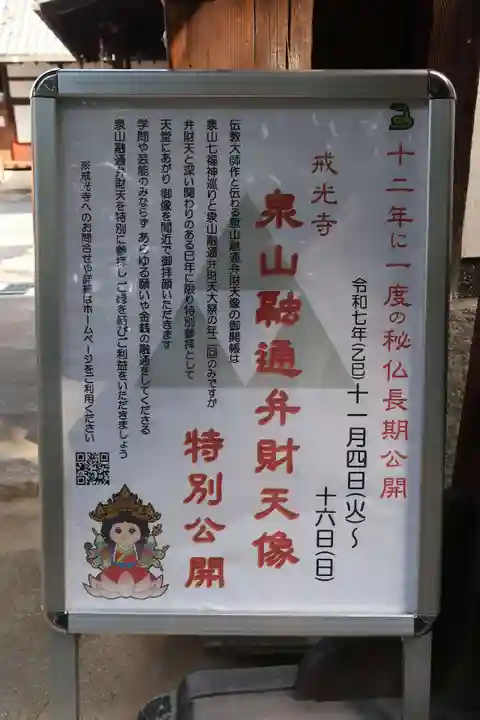 十二年に一度の秘仏長期公開
令和七年(乙巳)十一月四日(火)〜
十六日(日)
戒光寺
泉山融通弁財天像
特別公開
伝教大師作と伝わる泉山融通弁財天像の御開帳は
泉山七福神巡りと泉山融通弁財天大祭の年二回のみですが
弁財天と深い関わりのある巳年に限り特別参拝として
天堂にあがり御像を間近で御拝顔いただきます
学問や芸能のみならず あらゆる願いや金銭の融通をしてくださる
泉山融通弁財天を特別に参拝し ご縁を結びご利益をいただきましょう
※戒光寺へのお問合せや詳細はホームページをご利用ください